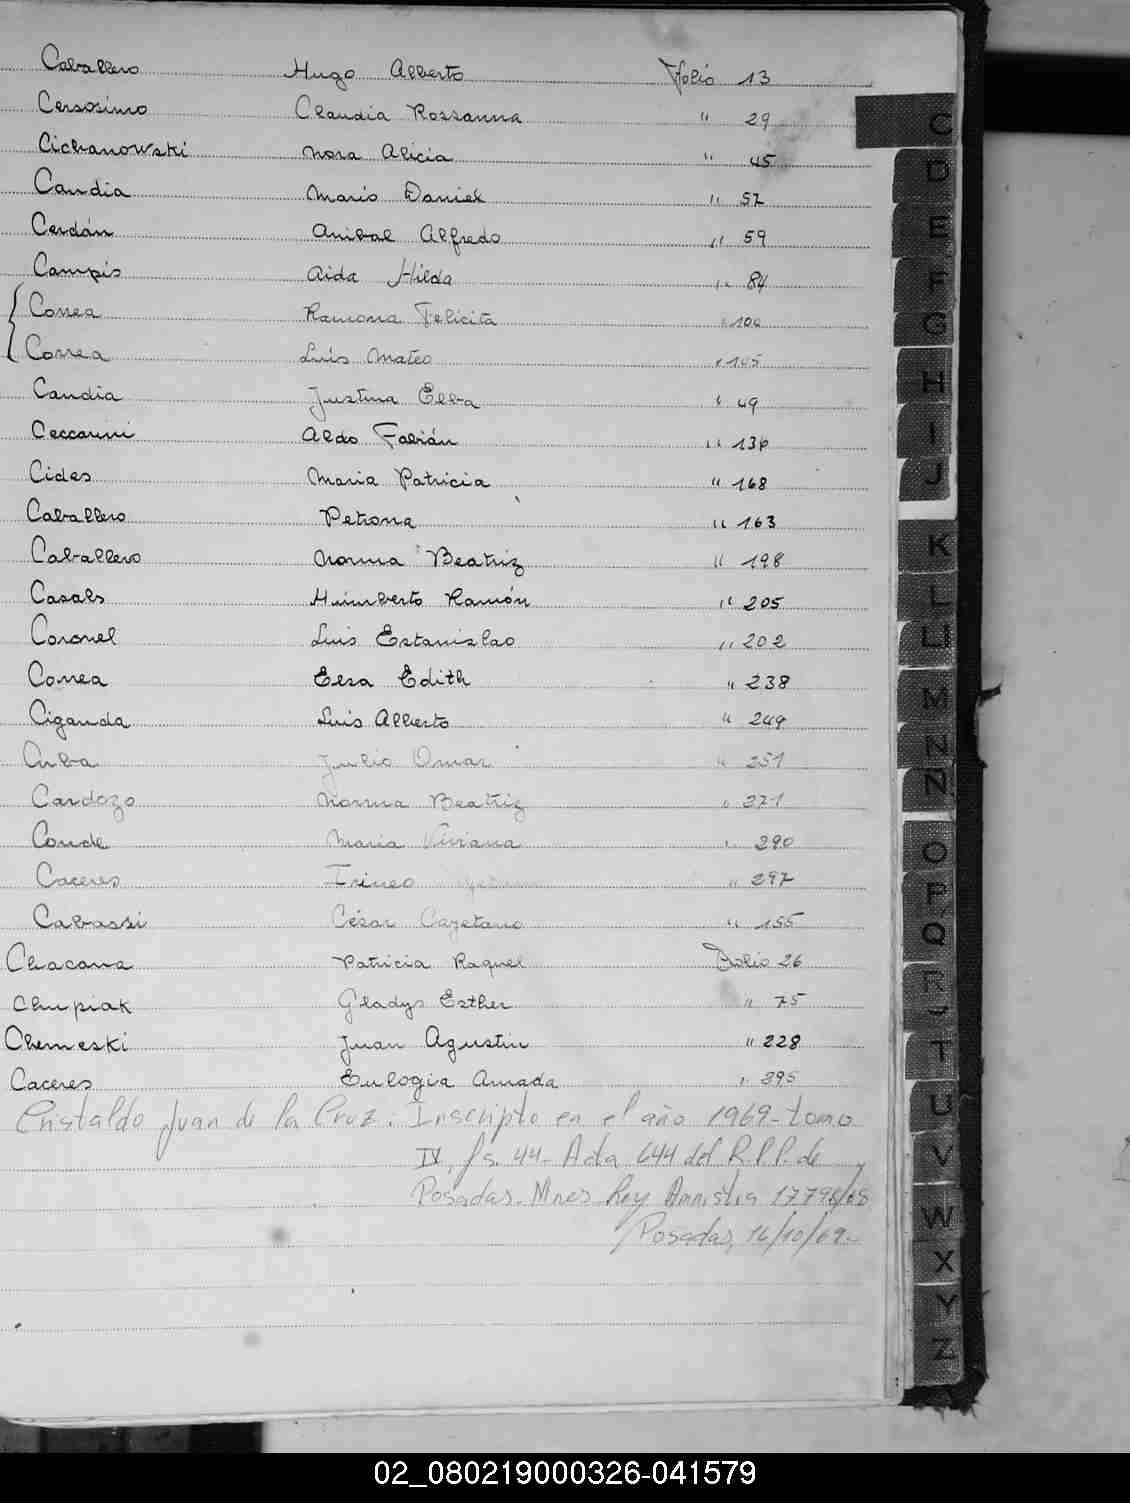 Caballero Hugo Alberto Folio 13
Cersosimo Claudia Rossanna " 29
Cichanowski Nora Alicia " 45
Candia Mario Daniel " 52
Cerdán Anibal Alfredo " 59
Campis Aida Hilda " 84
Correa Ramona Felicita " 100
Correa Luis Mateo " 145
Candia Justina Elba " 49
Ceccarini Aldo Fabián " 136
Cides Maria Patricia " 168
Caballero Petrona " 163
Caballero Norma Beatriz " 198
Casals Humberto Ramón " 205
Coronel Luis Estanislao " 202
Correa Elsa Edith " 238
Ciganda Luis Alberto " 249
Cuba Julio Omar " 251
Cardozo Norma Beatriz " 271
Conde Maria Viviana " 290
Caceres Irineo " 297
Cabassi César Cayetano " 155
Chacana Patricia Raquel Folio 26
Chupiak Gladys Esther " 75
Chemeski Juan Agustin " 228
Caceres Eulogia Amada " 295
Cristaldo Juan de la Cruz: Inscripto en el año 1969 - tomo
IV, fs. 44 - Acta 644 del R.P.P. de
Posadas - Mnes. Ley Amnistia 17798/68
Posadas, 16/10/69.-
C
D
E
F
G
H
I
J
K
L
Ll
M
N
Ñ
O
P
Q
R
T
U
V
W
X
Y
Z
02_080219000326-041579